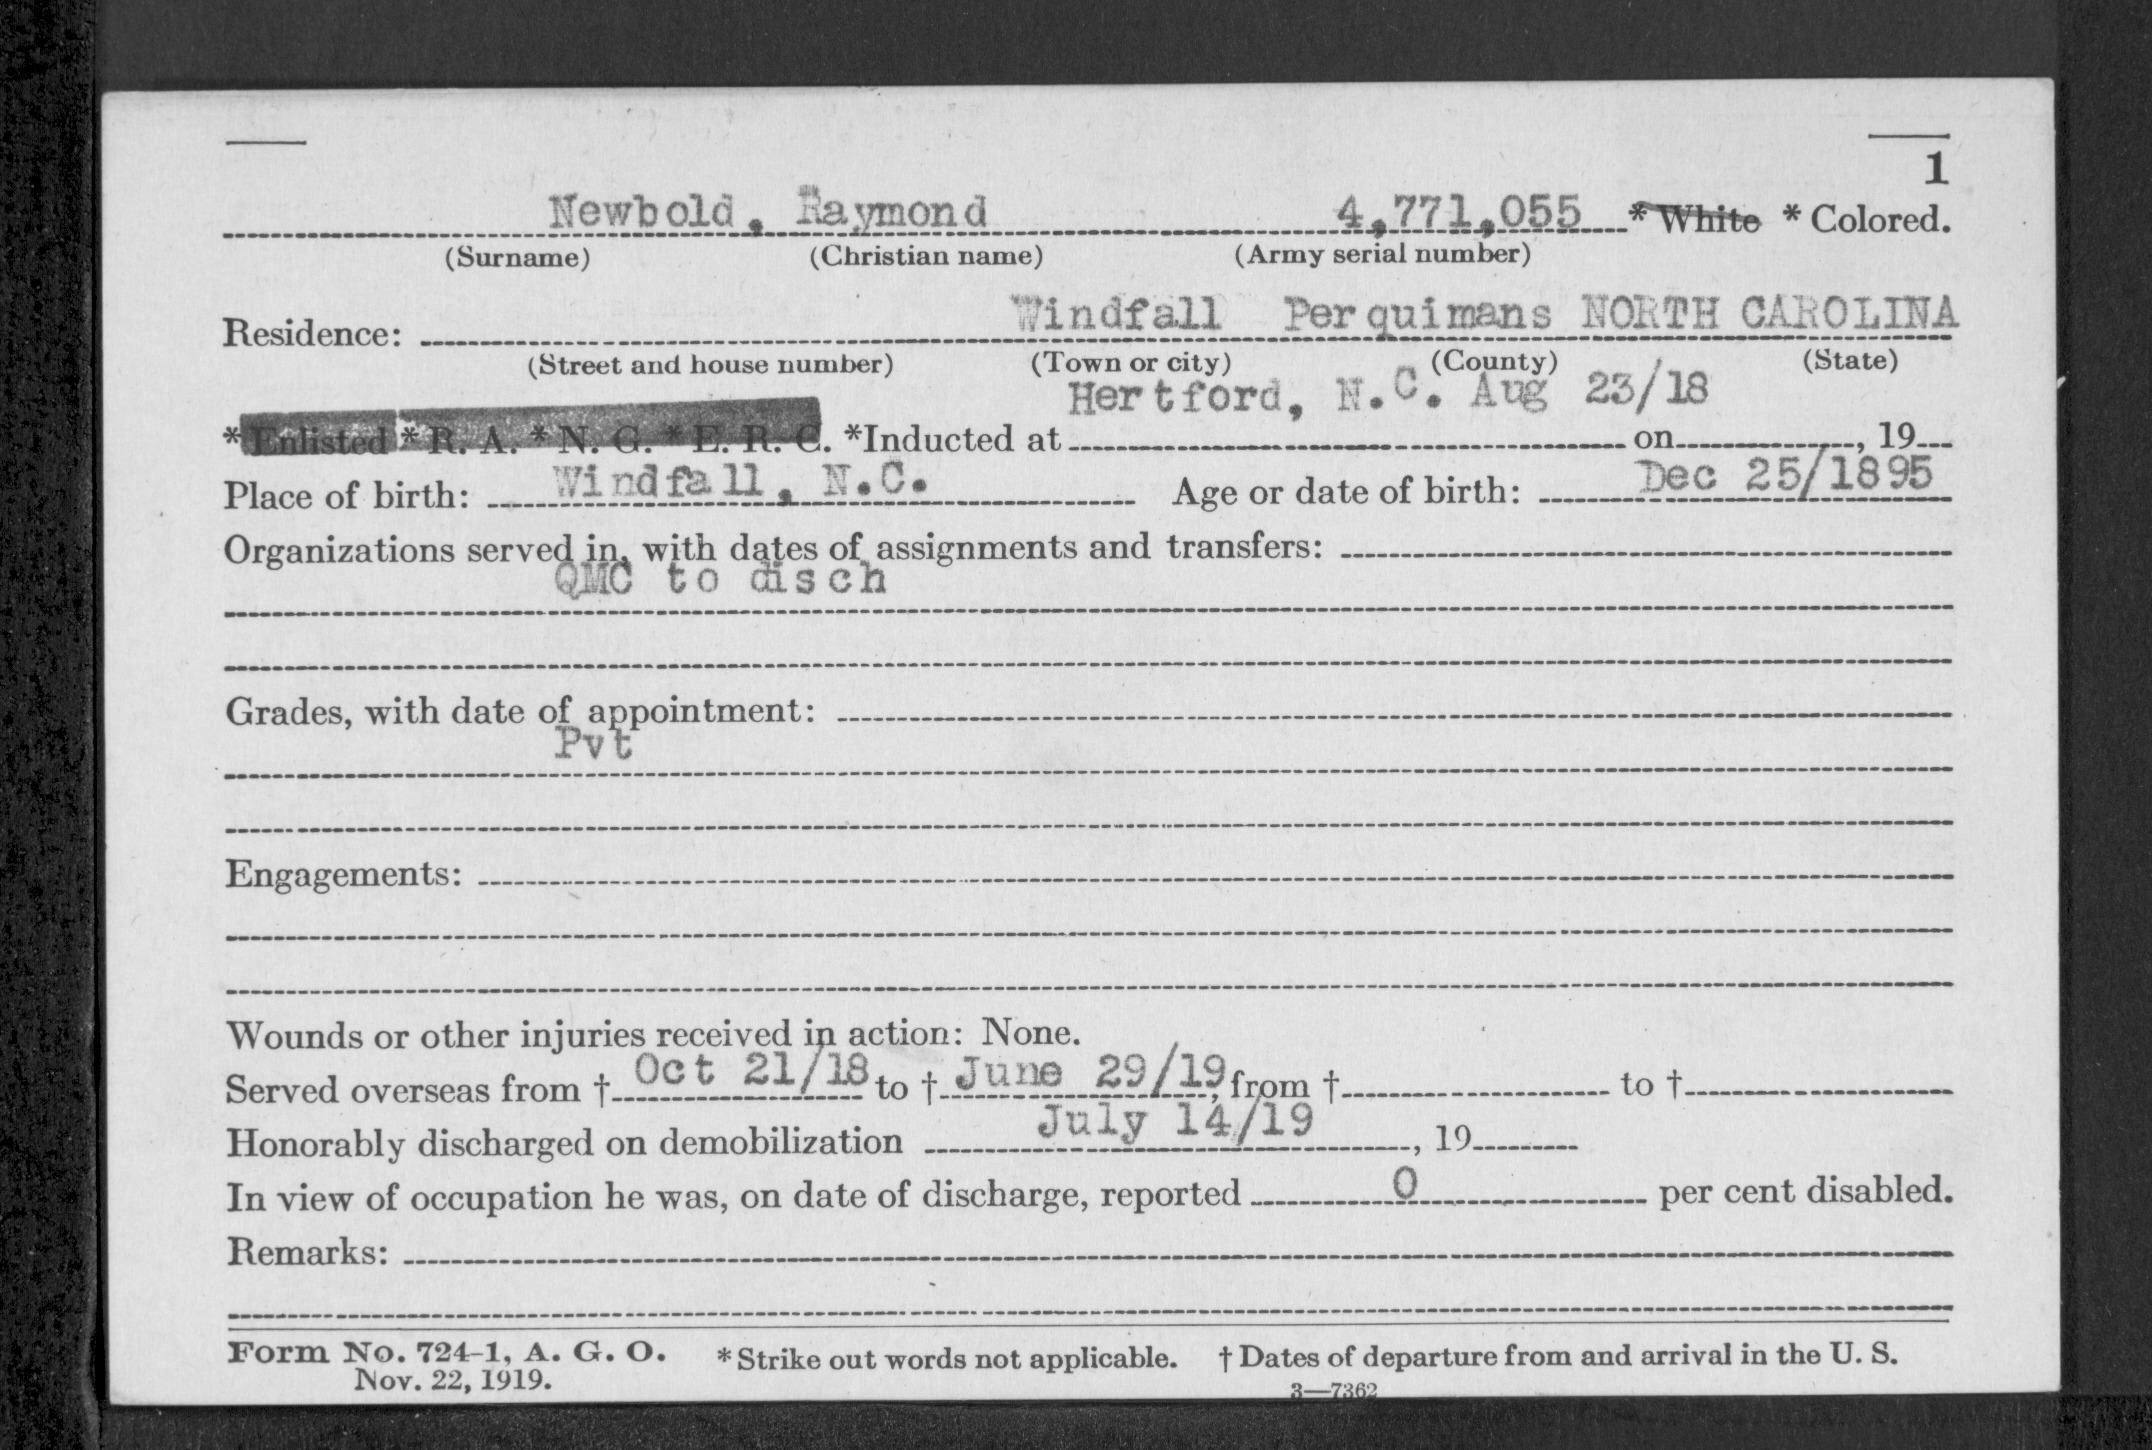 1
Newbold, Raymond 4,771,055 * White * Colored.
(Surname) (Christian name) (Army serial number)
Windfall Perquimans NORTH CAROLINA
Residence:
(Street and house number) (Town or city) (County) (State)
Hertford, N.C. Aug 23/18
*Enlisted *R. A. *N. G. *E. R. C. *Inducted at on , 19
Place of birth: Windfall, N.C. Age or date of birth: Dec 25/1895
Organizations served in, with dates of assignments and transfers:
QMC to disch
Grades, with date of appointment:
Pvt
Engagements:
Wounds or other injuries received in action: None.
Served overseas from † Oct 21/18 to † June 29/19, from † to †
Honorably discharged on demobilization July 14/19, 19
In view of occupation he was, on date of discharge, reported 0 per cent disabled.
Remarks:
Form No. 724-1, A. G. O. *Strike out words not applicable. † Dates of departure from and arrival in the U. S.
Nov. 22, 1919.
3—7362